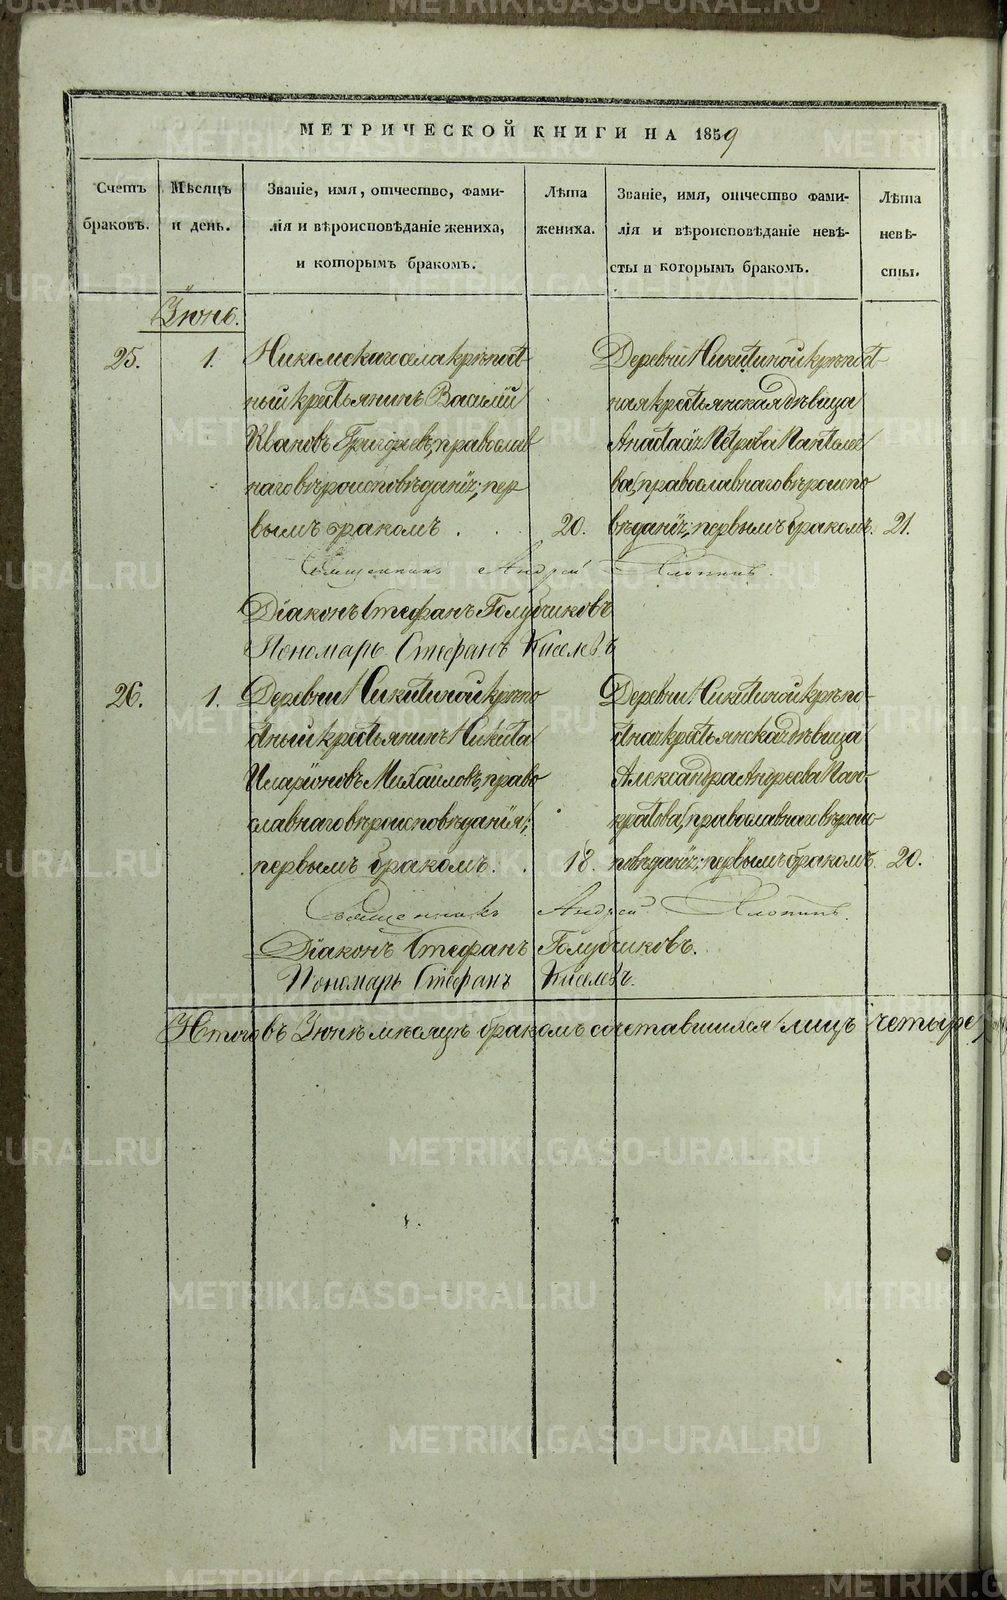 МЕТРИЧЕСКОЙ КНИГИ НА 1859
Счетъ браковъ.
Мѣсяцъ и день.
Званіе, имя, отчество, фами-
лія и вѣроисповѣданіе жениха,
и которымъ бракомъ.
Лѣта жениха.
Званіе, имя, отчество фами-
лія и вѣроисповѣданіе невѣ-
сты и которымъ бракомъ.
Лѣта невѣ-
сты.
Іюнь.
25. 1.
Никольскаго села крѣпост
ный крестьянинъ Василій
Ивановъ Григорьевъ, православ
наго вѣроисповѣданія; пер
вымъ бракомъ . . 20.
Деревни Никитиной крѣпост-
ная крестьянская дѣвица
Анастасія Петрова Пантелее
ва, православнаго вѣроиспо
вѣданія; первымъ бракомъ. 21.
Священникъ Андрей Хлопинъ.
Діаконъ Стефанъ Голубчиковъ
Пономарь Стефанъ Киселевъ
26. 1.
Деревни Никитиной крѣпо
стный крестьянинъ Никита
Иларіоновъ Михайловъ, право
славнаго вѣроисповѣданія;
первымъ бракомъ. . 18.
Деревни Никитиной крѣпо-
стная крестьянская дѣвица
Александра Андреева Пан-
кратова, православнаго вѣроис
повѣданія; первымъ бракомъ. 20.
Священникъ Андрей Хлопинъ.
Діаконъ Стефанъ Голубчиковъ.
Пономарь Стефанъ Киселевъ.
Итого въ Іюнѣ мѣсяцѣ бракомъ сочетавшихся лицъ четыре
METRIKI.GASO-URAL.RU